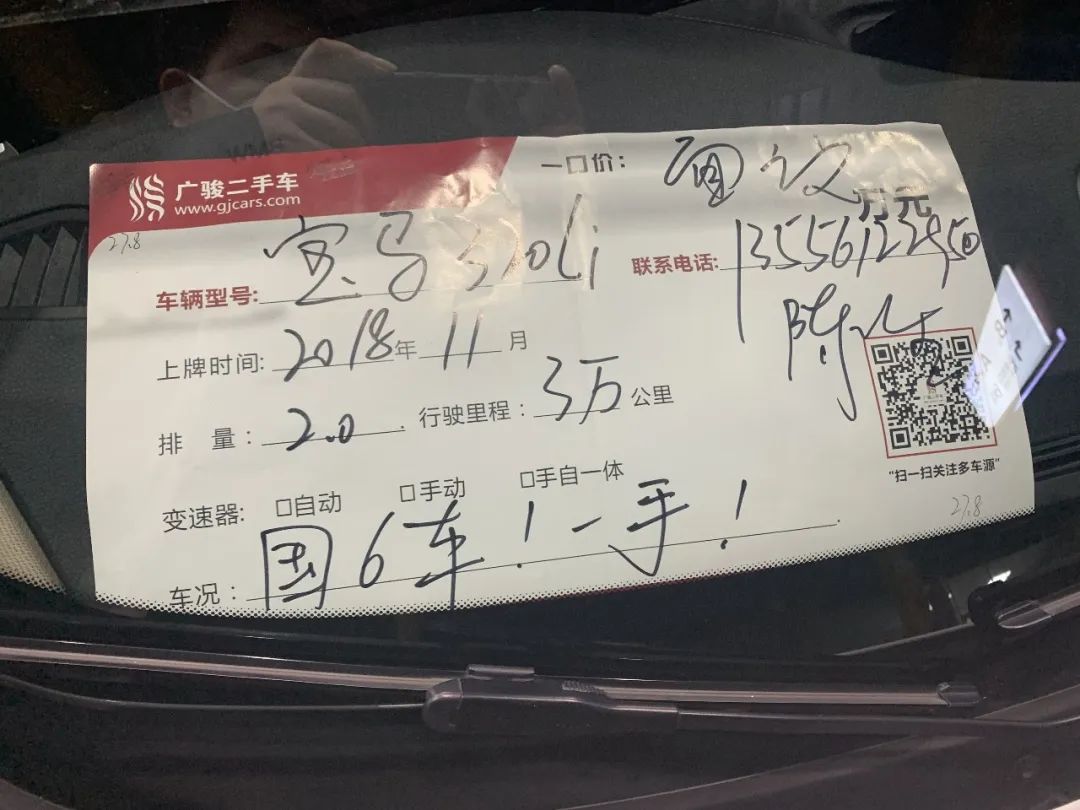 广骏二手车
www.gjcars.com
一口价: 面议 万元
27.8
车辆型号: 宝马320Li
联系电话: 13556122950
陈生
上牌时间: 2018年 11月
排 量: 2.0 . 行驶里程: 3万公里
变速器: □自动 □手动 □手自一体
"扫一扫关注多车源"
27.8
车况: 国6车!一手!